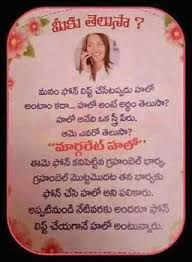 మీకు తెలుసా ?
మనం ఫోన్ లిఫ్ట్ చేసేటప్పుడు హలో
అంటాం కదా... హలో అంటే అర్థం తెలుసా?
హలో అనేది ఒక స్త్రీ పేరు.
ఆమె ఎవరో తెలుసా?
"మార్గరెట్ హలో"
ఈమె ఫోన్ కనిపెట్టిన గ్రహంబెల్ భార్య.
గ్రహంబెల్ మొట్టమొదట తన భార్యకు
ఫోన్ చేసి హలో అని పలికారు.
అప్పటినుండి నేటివరకు అందరూ ఫోన్
లిఫ్ట్ చేయగానే హలో అంటున్నారు.